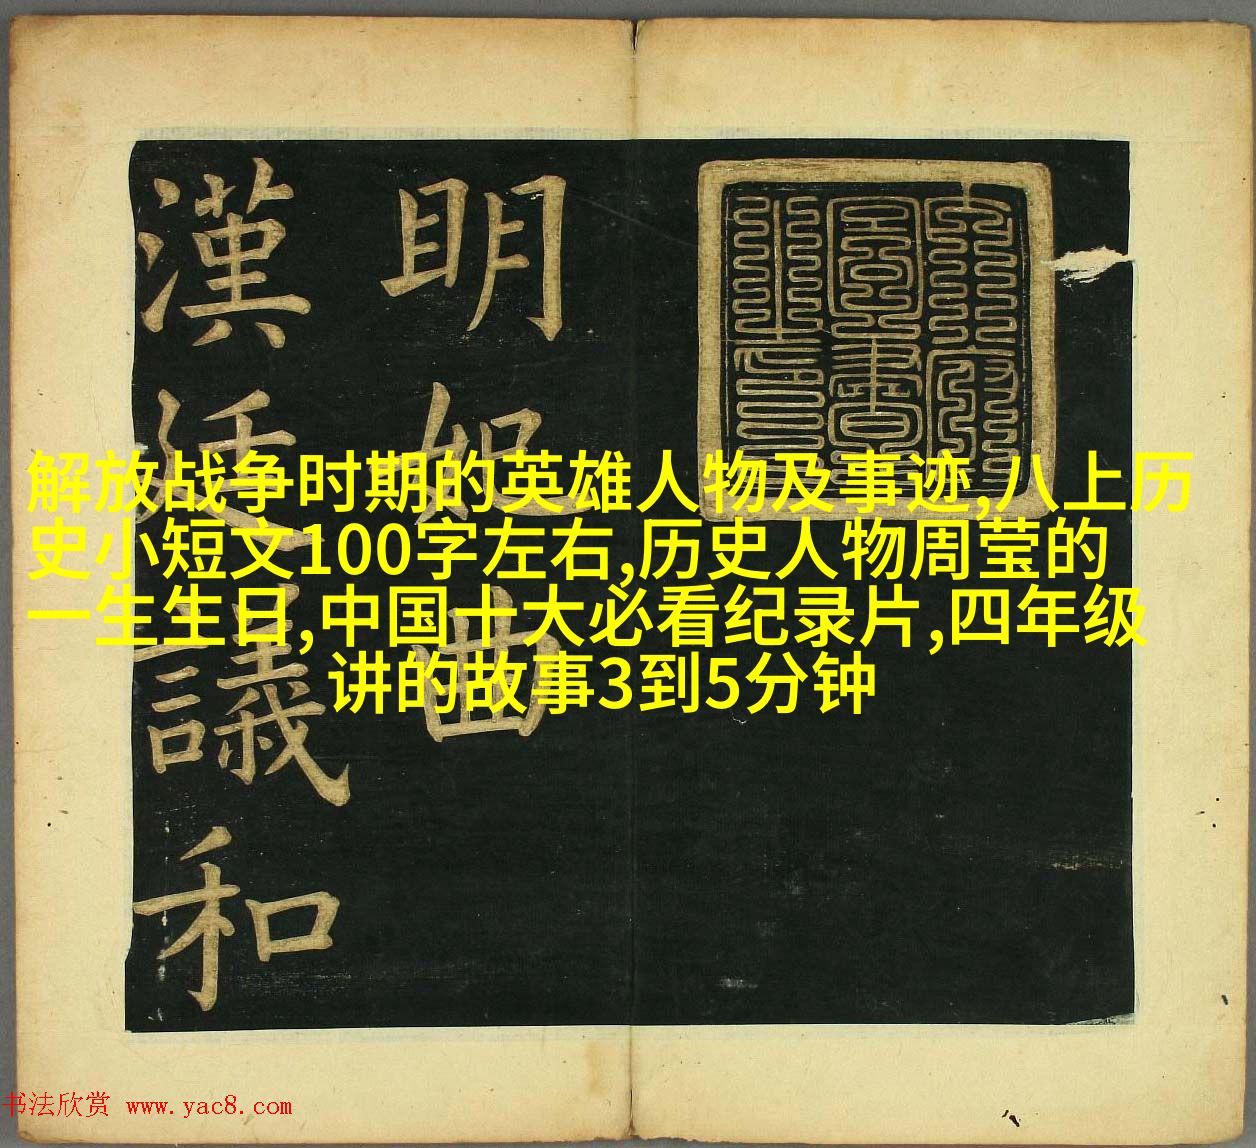 明妃曲
漢廷議和
解放战争时期的英雄人物及事迹,八上历
史小短文100字左右,历史人物周莹的
一生生日,中国十大必看纪录片,四年级
讲的故事3到5分钟
书法欣赏 www.yac8.com